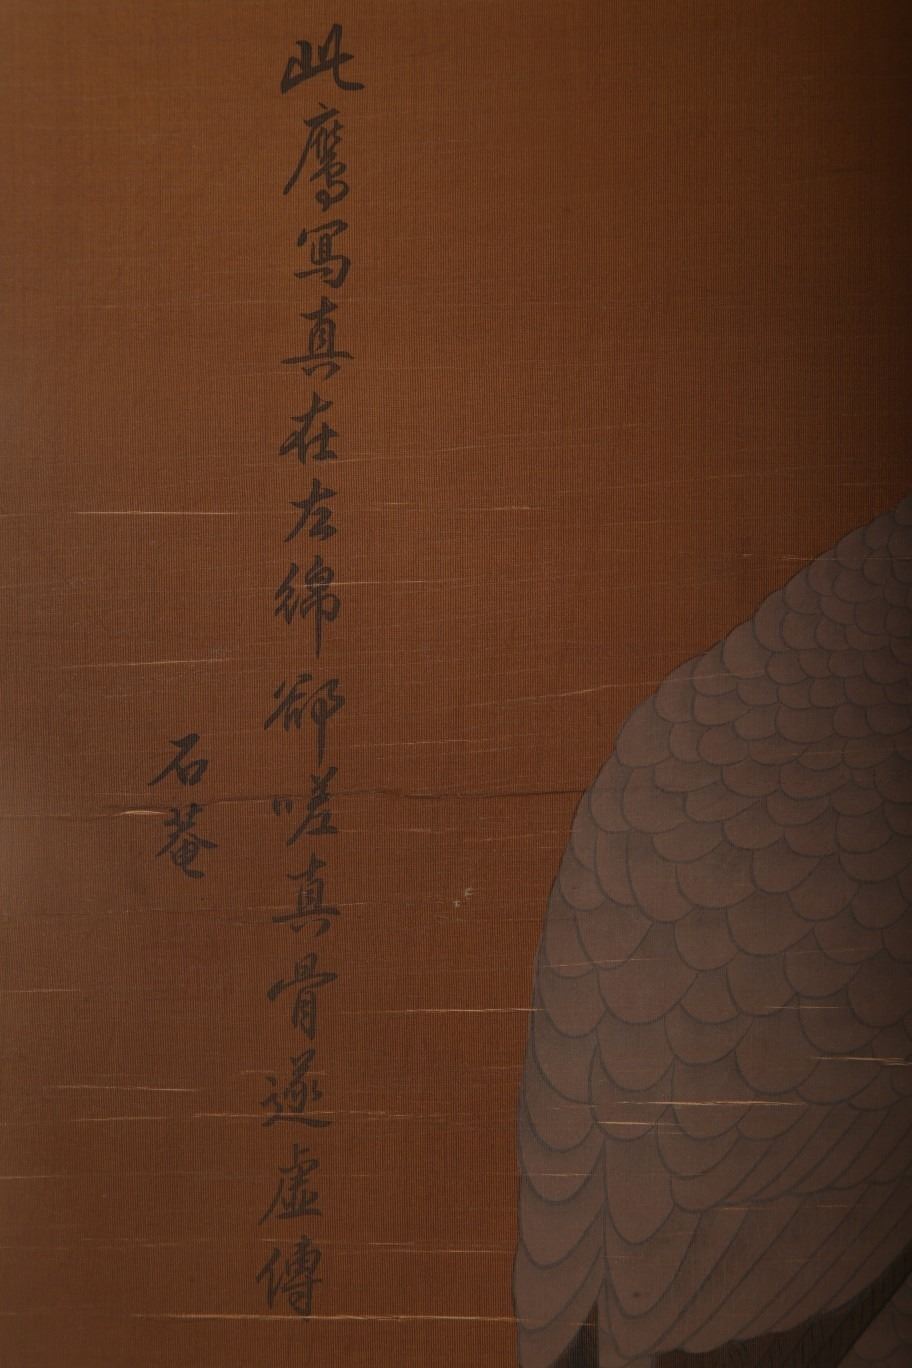 此鷹寫真在左綿卻嗟真骨遂虛傳
石菴